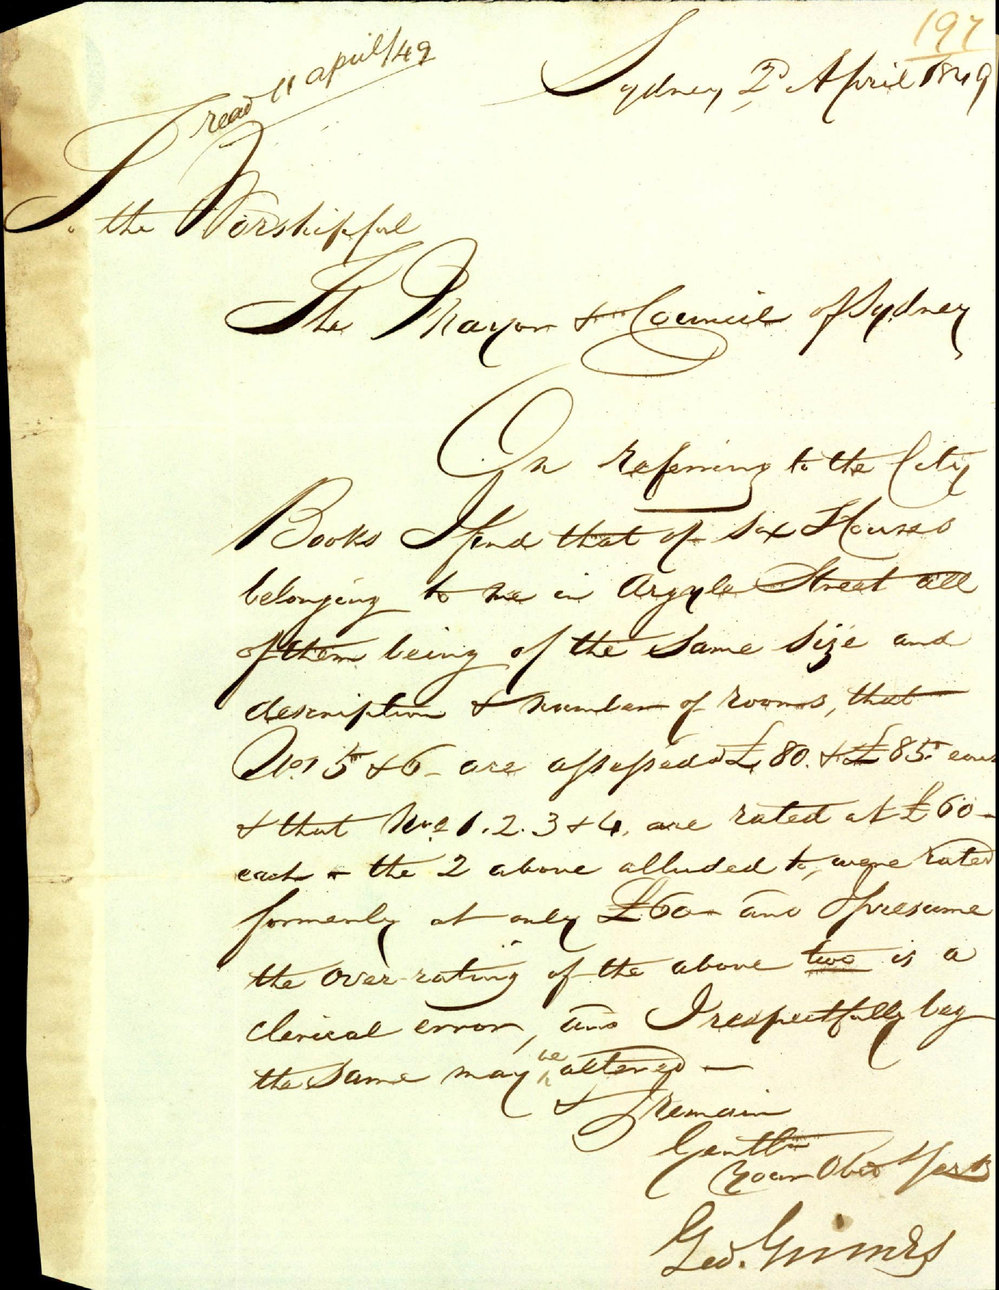 197
Sydney 2d April 1849
read 11 april/49
To the Worshipful
The Mayor & Council of Sydney
On referring to the City
Books I find that of six Houses
belonging to me in Argyle Street all
of them being of the same size and
description & number of rooms, that
Nos 5 & 6 - are assessed £80. & £85
& that Nos 1. 2. 3 & 4. are rated at £60 -
each - the 2 above alluded to, were rated
formerly at only £60 - and I presume
the over-rating of the above two is a
clerical error, and I respectfully beg
the same may be altered -
& I remain
Gentln
Your Obed Servt
Geo. Grimes